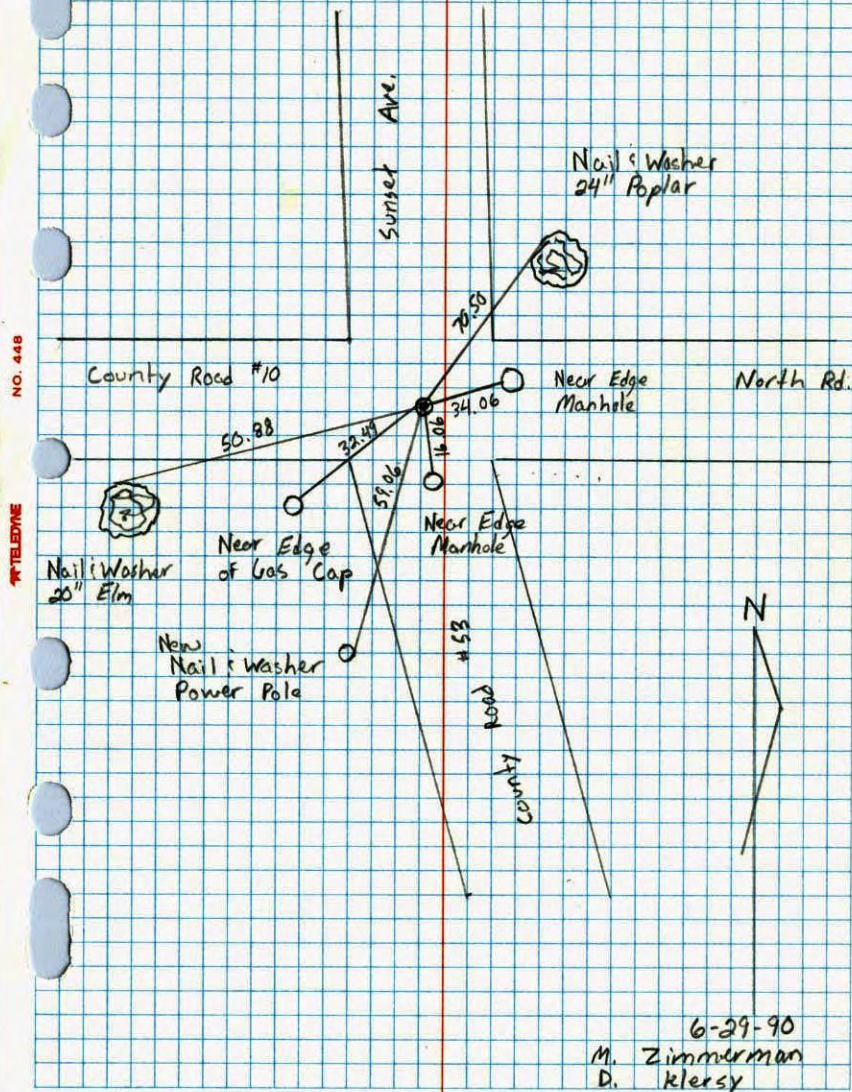 Sunset Ave.
Nail & Washer
24" Poplar
70.50
NO. 448
County Road #10
Near Edge
Manhole
North Rd.
34.06
50.88
32.49
16.06
59.06
Near Edge
Manhole
Near Edge
of Gas Cap
TELEDYNE
Nail & Washer
20" Elm
New
Nail & Washer
Power Pole
County Road #53
N
6-29-90
M. Zimmerman
D. Klersy